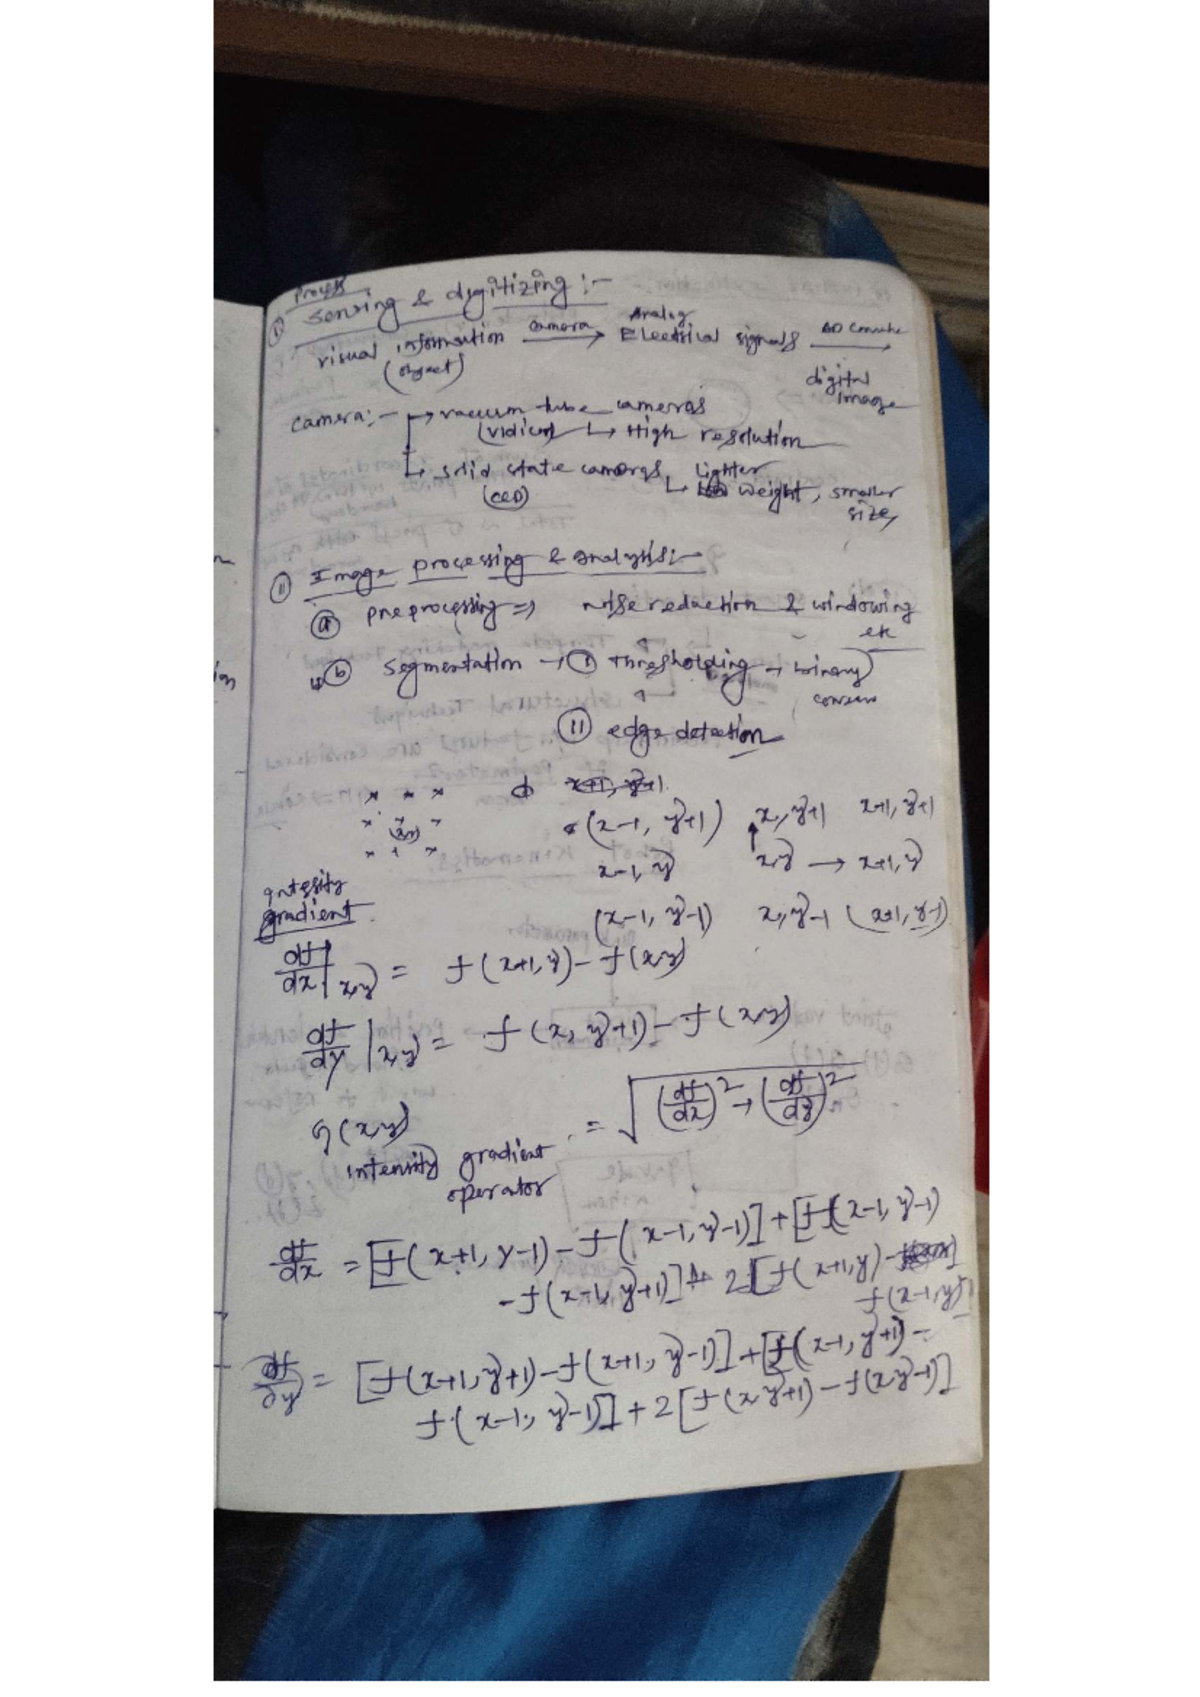 Process
① Sensing & digitizing :-
visual information (object) camera → Analog Electrical signals AD Converter →
digital image
Camera:- → vacuum tube cameras
(vidicon) ↳ High resolution
↳ solid state cameras ↳ Lighter weight, smaller size,
(CCD)
⑪ Image processing & analysis:-
ⓐ preprocessing ⇒ noise reduction & windowing etc
ⓑ segmentation → ① Thresholding → binary
⑪ edge detection
x x x
(x-1, y+1) x, y+1 x+1, y+1
x (x,y) x
x-1, y x,y → x+1, y
x x x
(x-1, y-1) x, y-1 (x+1, y-1)
intesity
gradient.
df/dx | x,y = f(x+1, y) - f(x,y)
df/dy | x,y = f(x, y+1) - f(x,y)
G(x,y) = √(df/dx)² + (df/dy)²
intensity gradient
operator
df/dx = [f(x+1, y-1) - f(x-1, y-1)] + [f(x-1, y-1)
- f(x-1, y+1)] + 2[f(x+1, y) -
f(x-1, y)]
df/dy = [f(x+1, y+1) - f(x+1, y-1)] + [f(x-1, y+1) -
f(x-1, y-1)] + 2[f(x y+1) - f(x y-1)]